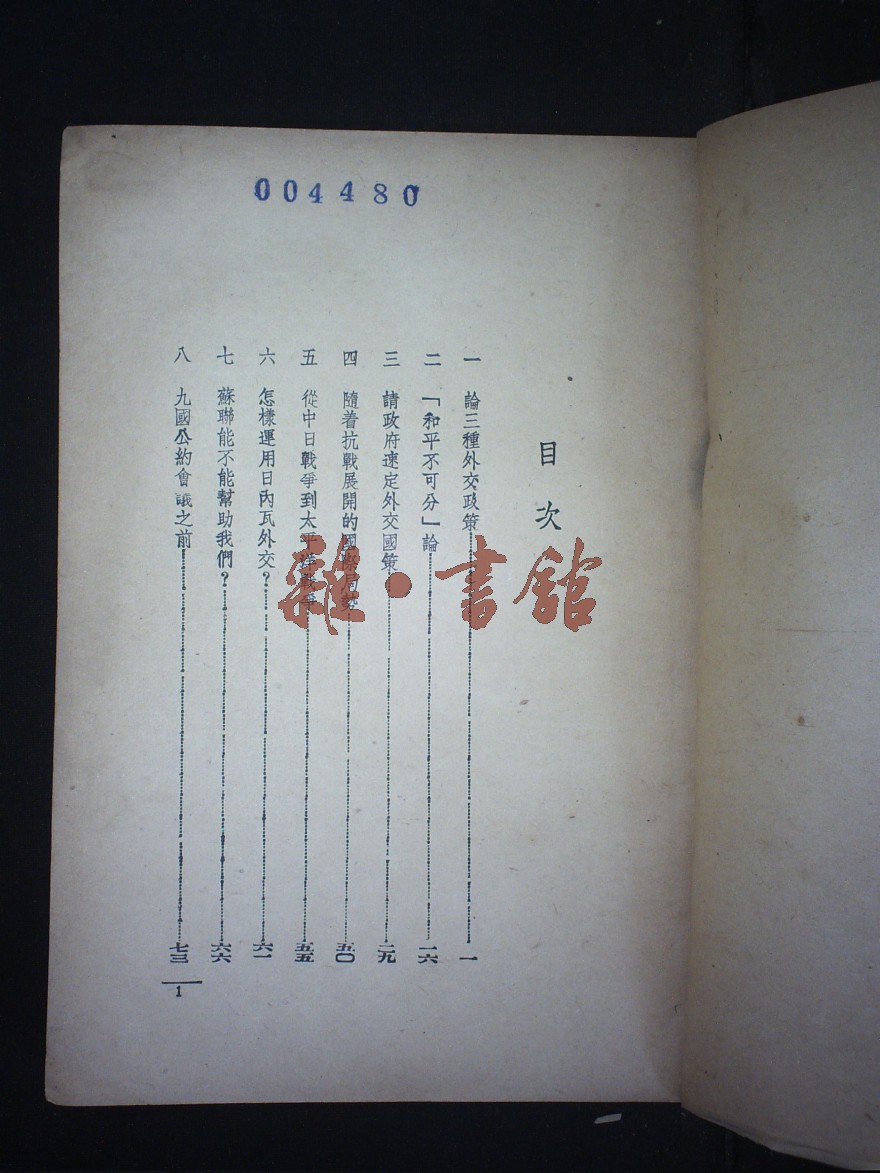 004480
目次
一 論三種外交政策 一
二 「和平不可分」論 一六
三 請政府速定外交國策 二九
四 隨着抗戰展開的國際局勢 五〇
五 從中日戰爭到太平洋戰爭 五五
六 怎樣運用日內瓦外交？ 六一
七 蘇聯能不能幫助我們？ 六六
八 九國公約會議之前 七三
1
雜·書館